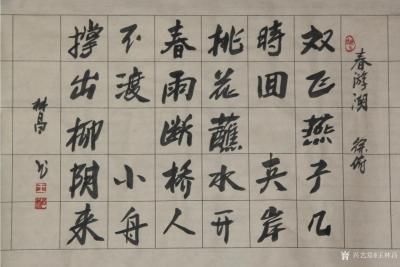 春游湖 徐俯
双飞燕子几
時回 夹岸
桃花蘸水开
春雨断桥人
不渡 小舟
撑出柳阴来
林昌书